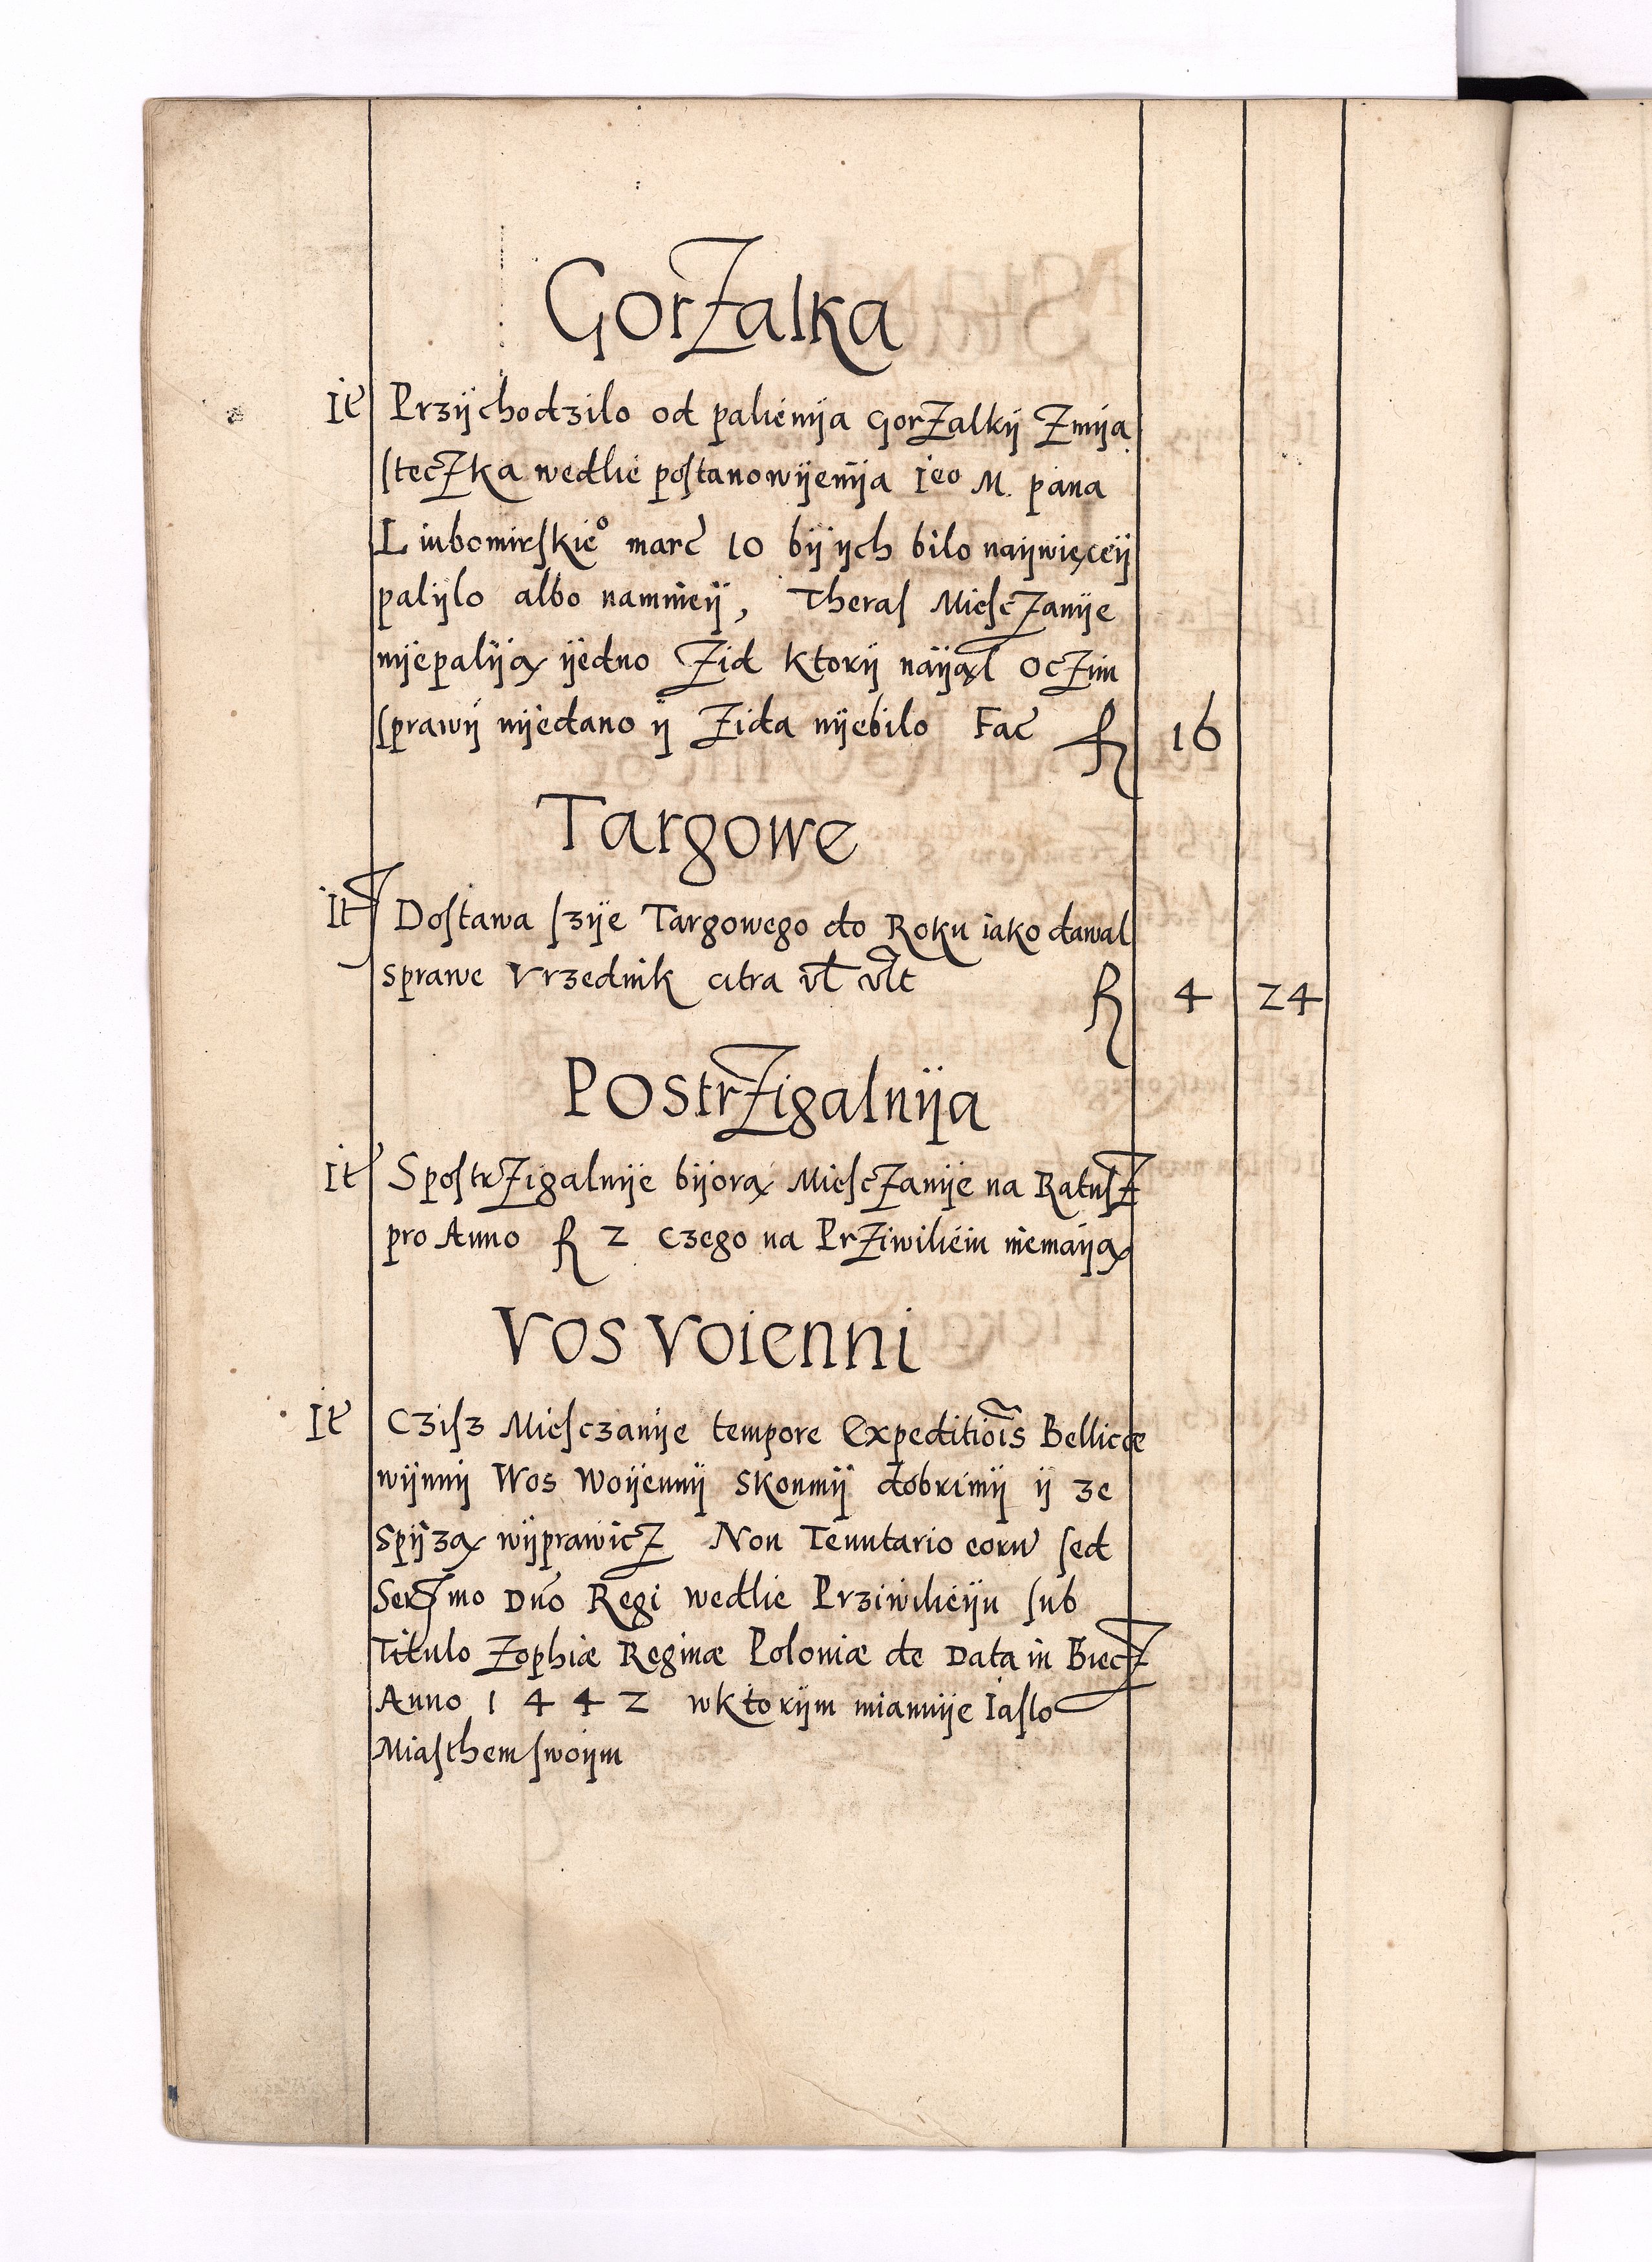 GorZalka
It Przijchodzilo od palienija GorZalkij Zmija
stecZka wedlie postanowijenija Ieo M. pana
Liubomirskieo marc 10 bij ijch bilo naijwięceij
palijlo albo namnieij, Theras MiescZanije
nijepalija̧ ijedno Zid ktorij naija̧l OcZim
sprawij nijedano ij Zida nijebilo Fac fl 16
Targowe
It Dostawa szije Targowego do Roku iako dawal
sprawe Vrzednik citra vl vlt fl 4 24
PostrZigalnija
It SpostrZigalnije bijora̧ MiescZanije na RatusZ
pro Anno fl 2 czego na PrZiwilieiu niemaija̧
Vos Voienni
It Czisz Miesczanije tempore Expeditiois Bellicae
wijnnij Wos Woijennij Skonmij dobrimij ij ze
Spijza̧ wijprawicZ Non Tenutario eoru sed
Sermo Dno Regi wedlie Prziwilieiju sub
Titulo Zophiæ Reginæ Poloniæ de Data in BiecZ
Anno 1442 wktorijm mianuije Iaslo
Miasthem swoijm